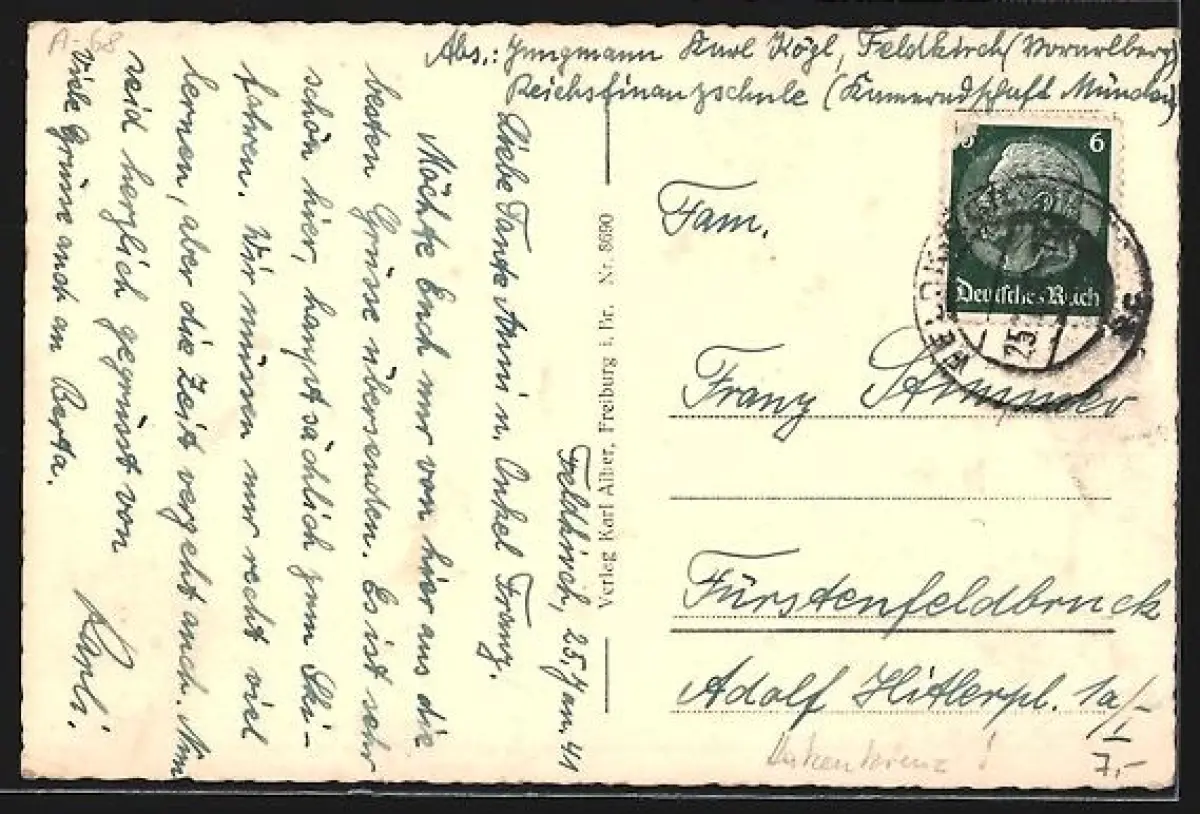 A-68
Abs.: Jungmann Karl Kögl, Feldkirch (Vorarlberg)
Reichsfinanzschule (Kameradschaft München)
Feldkirch, 25. Jan. 41
Liebe Tante Anni u. Onkel Franz.
Möchte Euch nur von hier aus die
besten Grüsse übersenden. Es ist sehr
schön hier, hauptsächlich zum Ski-
fahren. Wir müssen nur recht viel
lernen, aber die Zeit vergeht auch. Nun
seid herzlich gegrüsst von
Karli.
Viele Grüsse auch an Berta.
Verlag Karl Alber, Freiburg i. Br. Nr. 8690
6
Deutsches Reich
25
Fam.
Franz
Fürstenfeldbruck
Adolf Hitlerpl. 1a/I
7,-